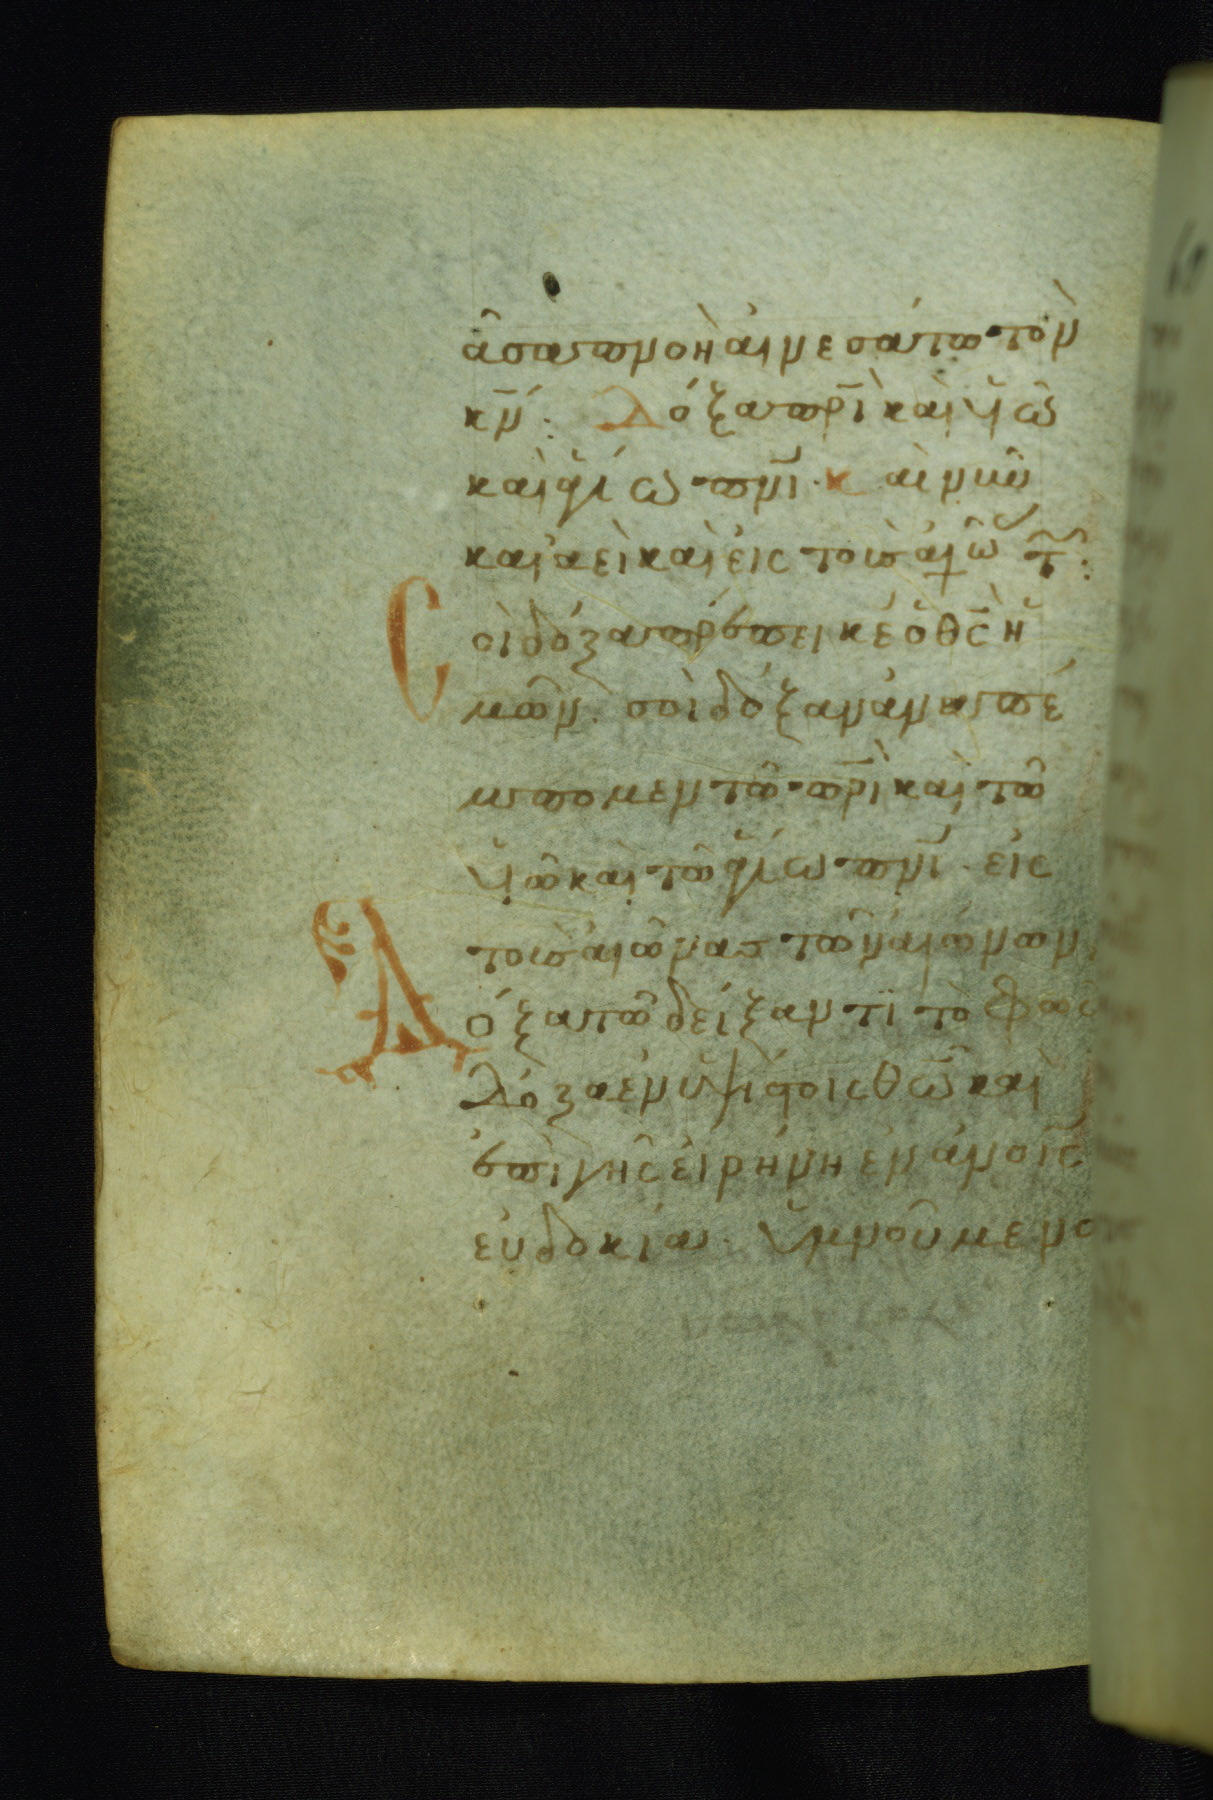 ᾶσα πνοὴ αἰνεσάτω τὸν
κ̅ν̅. Δόξα π̅ρ̅ι̅ καὶ υἱῶ
καὶ ἁγίω π̅ν̅ι̅. καὶ νῦν
καὶ ἀεὶ καὶ εἰς τοὺς αἰῶ τ̅:
Σοὶ δόξα πρέπει κ̅ε̅ ὁ θ̅ς̅ ἡ
μῶν. σοὶ δόξαν ἀναπέ
μπομεν τῶ π̅ρ̅ι̅ καὶ τῶ
υἱῶ καὶ τῶ ἁγίω π̅ν̅ι̅. εἰς
τοὺς αἰῶνας τῶν αἰώνων.
Δόξα τῶ δείξαντι τὸ φῶς
Δόξα ἐν ὑψίστοις θ̅ω̅ καὶ
ἐπὶ γῆς εἰρήνη ἐν ἀ̅ν̅ο̅ι̅ς̅
εὐδοκία. Ὑμνοῦμεν σ